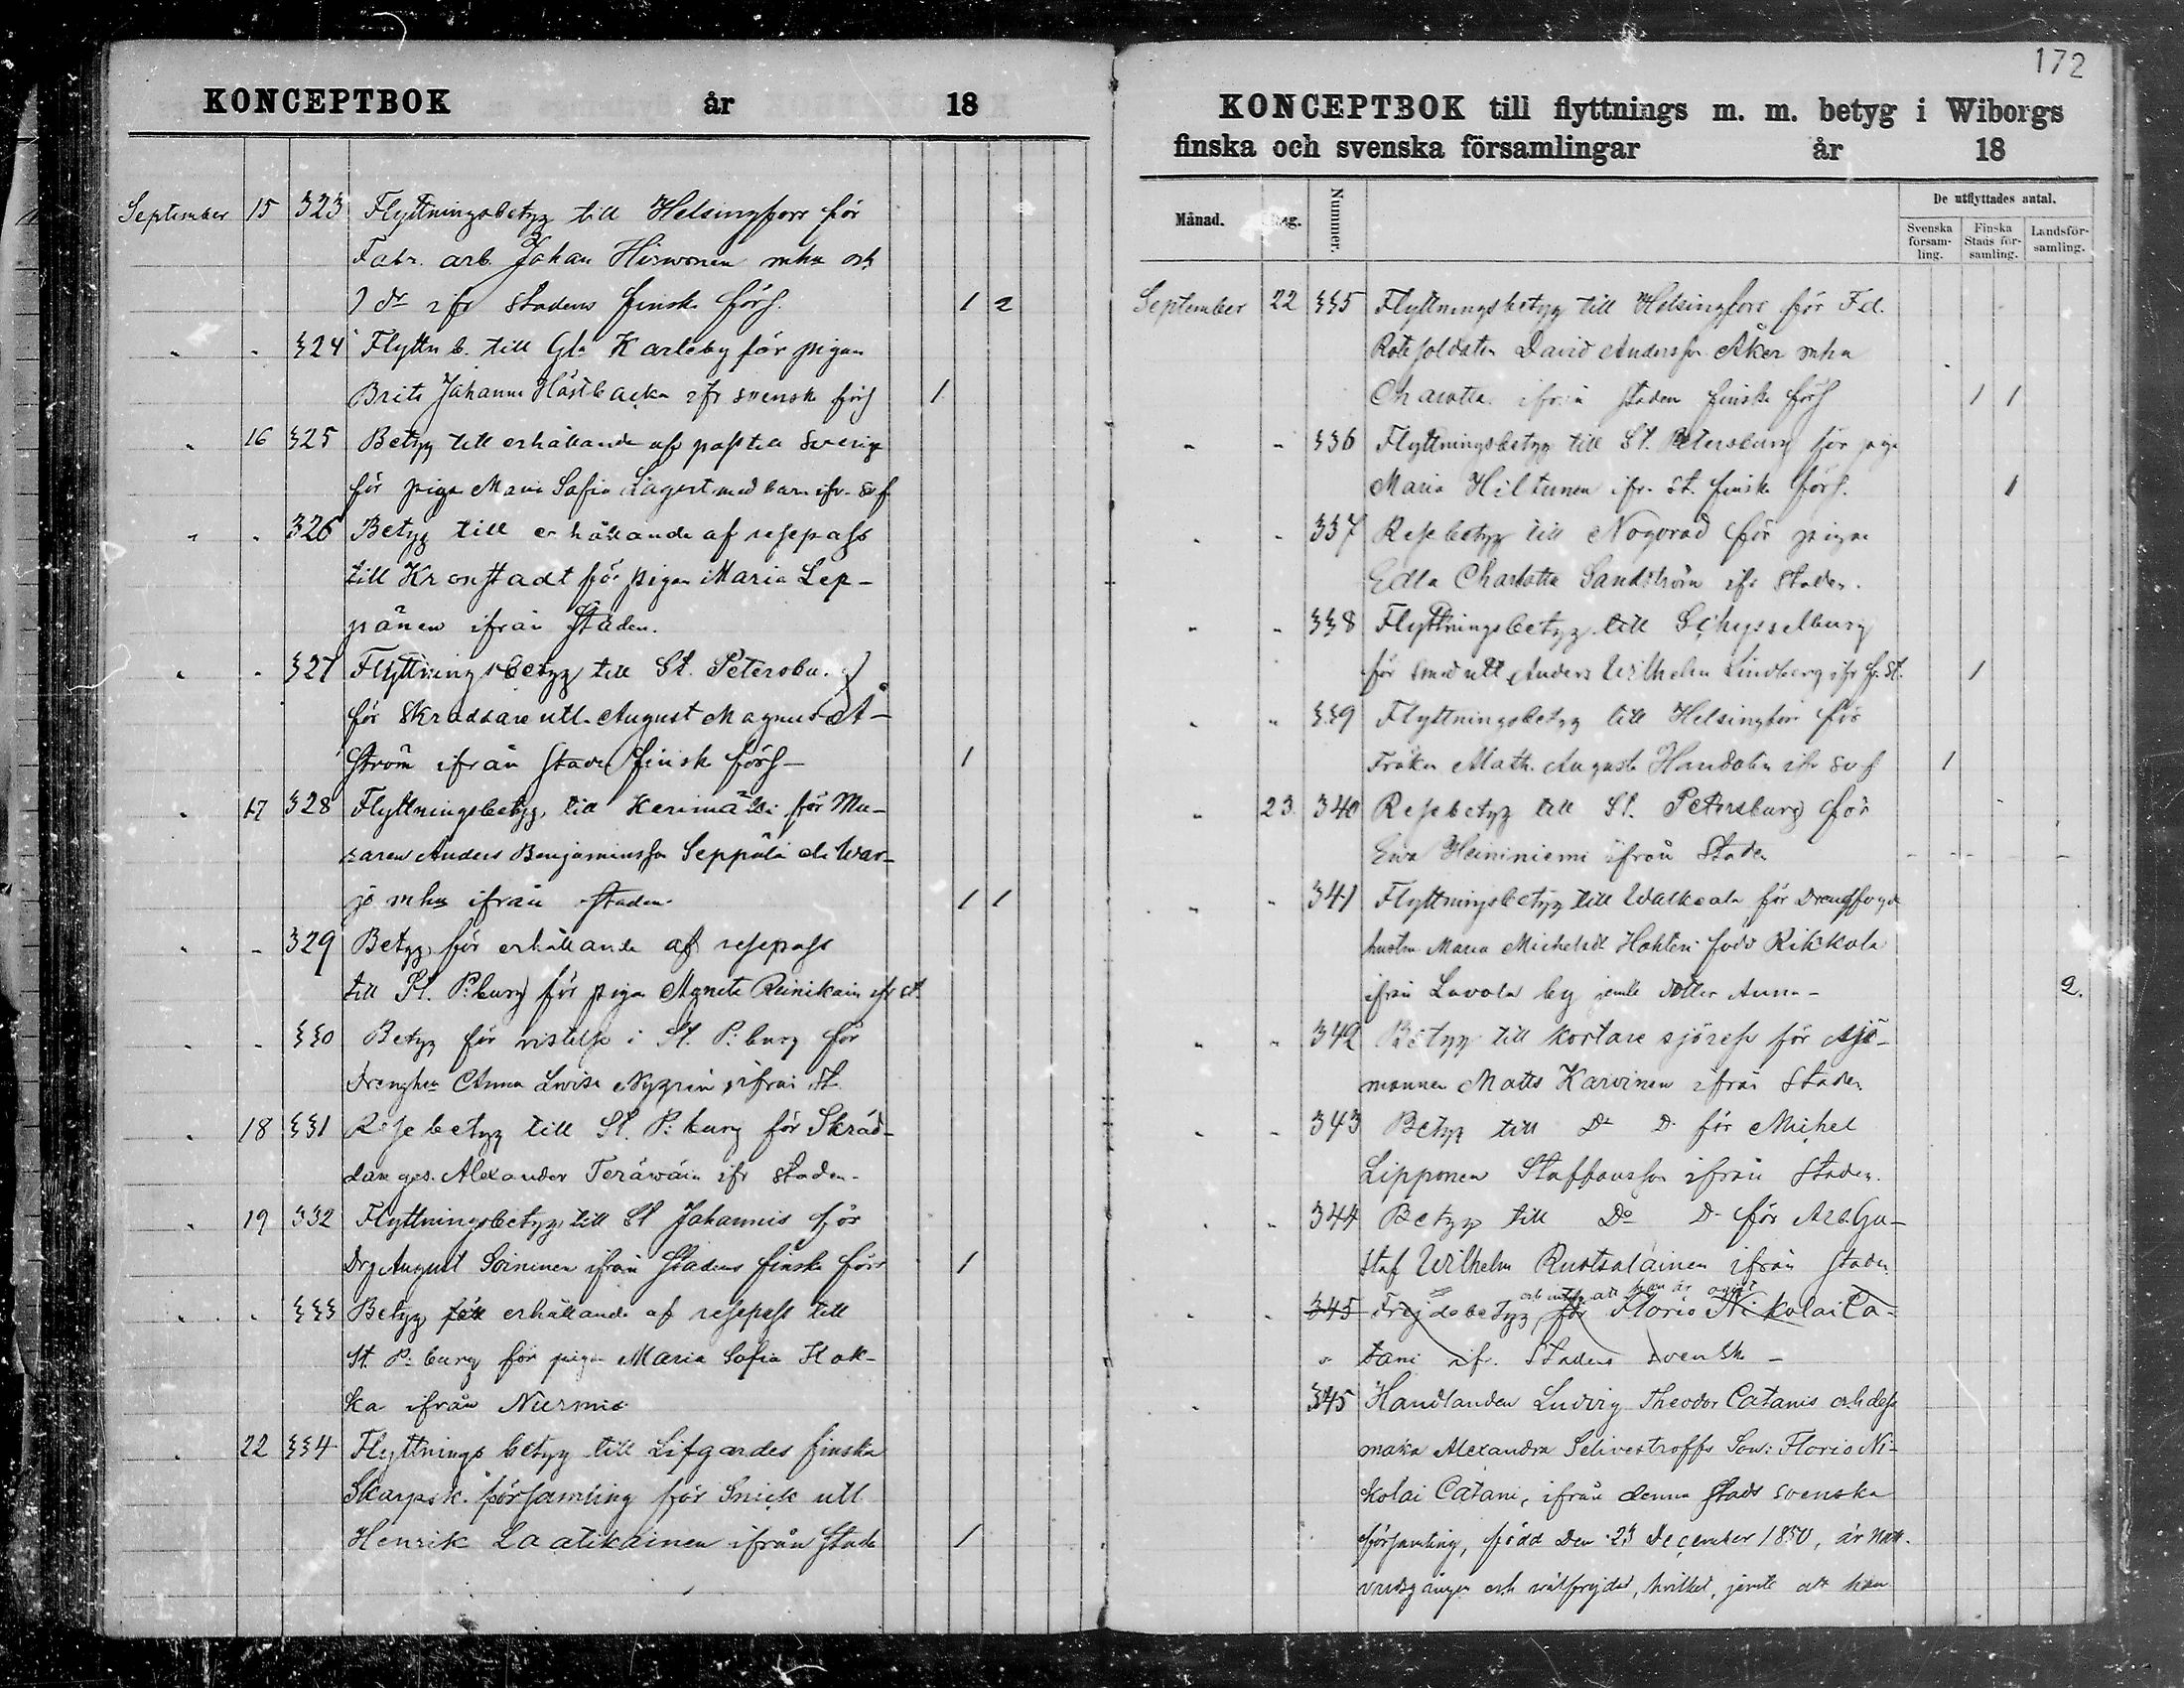 KONCEPTBOK år 18
September 15 323 Flyttningsbetyg till Helsingfors för
Fabr. arb. Johan Hirwonen mhu och
1 dr ifr stadens finska förs. 1 2
" " 324 Flyttn b. till Gla Karleby för pigan
Brita Johanna Hästbacka ifr svenska förs 1
" 16 325 Betyg till erhållande aff pass till Sverige
för pigan Maria Sofia Lagert med barn ifr. Sv f.
" " 326 Betyg till erhållande af resepass
till Kronstadt för pigan Maria Lep-
pänen ifrån Staden.
" " 327 Flyttningsbetyg till St. Petersbu.g
för Skräddare utl. August Magnus Å-
ström ifrån staden finska förs- 1
" 17 328 Flyttningsbetyg till Kerimäki för Mu-
raren Anders Benjaminsson Seppälä el. War-
jo mhu ifrån staden 1 1
" " 329 Betyg för erhållande af resepass
till St. P:burg för pigan Agneta Reinikain ifr st.
" " 330 Betyg för vistelse i St. P:burg för
Drenghu Anna Lovisa Nygrén, ifrån St.
" 18 331 Resebetyg till St. P:burg för Skräd-
dareges. Alexander Teräwäin ifr staden-
" 19 332 Flyttningsbetyg till St Johannis för
Drg August Soininen ifrån Stadens finska förs 1
" " 333 Betyg till erhållande af resepass till
St. P:burg för pigan Maria Sofia Hak-
ka ifrån Nurmis
" 22 334 Flyttnings betyg till Lifgardes finska
Skarpsk. församling för Snick utl
Henrik Laatikainen ifrån stade 1
172
KONCEPTBOK till flyttnings m. m. betyg i Wiborgs
finska och svenska församlingar år 18
Månad. Dag. Nummer. De utflyttades antal.
Svenska församling. Finska Stads församling. Landsförsamling.
September 22 335 Flyttningsbetyg till Helsingfors för F.d.
Rotesoldaten David Andersson Åker mhu
Charotta ifrån staden finska förs 1 1
" " 336 Flyttningsbetyg till St. Petersburg för piga
Maria Hiltunen ifr. St. finska förs. 1
" " 337 Resebetyg till Nogorod för pigan
Edla Charlotta Sandström ifr Staden.
" " 338 Flyttningsbetyg till Schysselburg
för smed utl Anders Wilhelm Lindberg ifr f. St. 1
" " 339 Flyttningsbetyg till Helsingfors för
Fröken Math. Augusta Handolin ifr Sv f 1
" 23 340 Resebetyg till St. Petersburg för
Ewa Heininiemi ifrån Staden
" " 341 Flyttningsbetyg till Walkeala för Drengfogde
hustru Maria Michelsdr Hohten född Rikkola
ifrån Lavola by jemte dotter Anna- 2.
" " 342 Betyg till kortare sjöresa för sjö-
mannen Matts Karvinen ifrån Staden
" " 343 Betyg till Do D. för Michel
Lipponen Staffansson ifrån Staden.
" " 344 Betyg till Do D. för Arb. Gu-
staf Wilhelm Ruotsalainen ifrån staden
och intyg att han är ogift
" " 345 Frejdebetyg för Florio Nikolai Ca-
tani ifr. Stadens svensk -
" 345 Handlanden Ludvig Theodor Catanis och dess
maka Alexandra Selivestroffs Son: Florio Ni-
kolai Catani, ifrån denna stads svenska
församling, född den 23 December 1850, är natt-
vardsgången och välfrejdad, hvilket, jemte att han